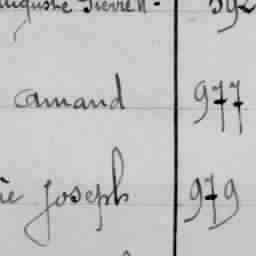 Auguste Pierre 592
amand 977
ie Joseph 979